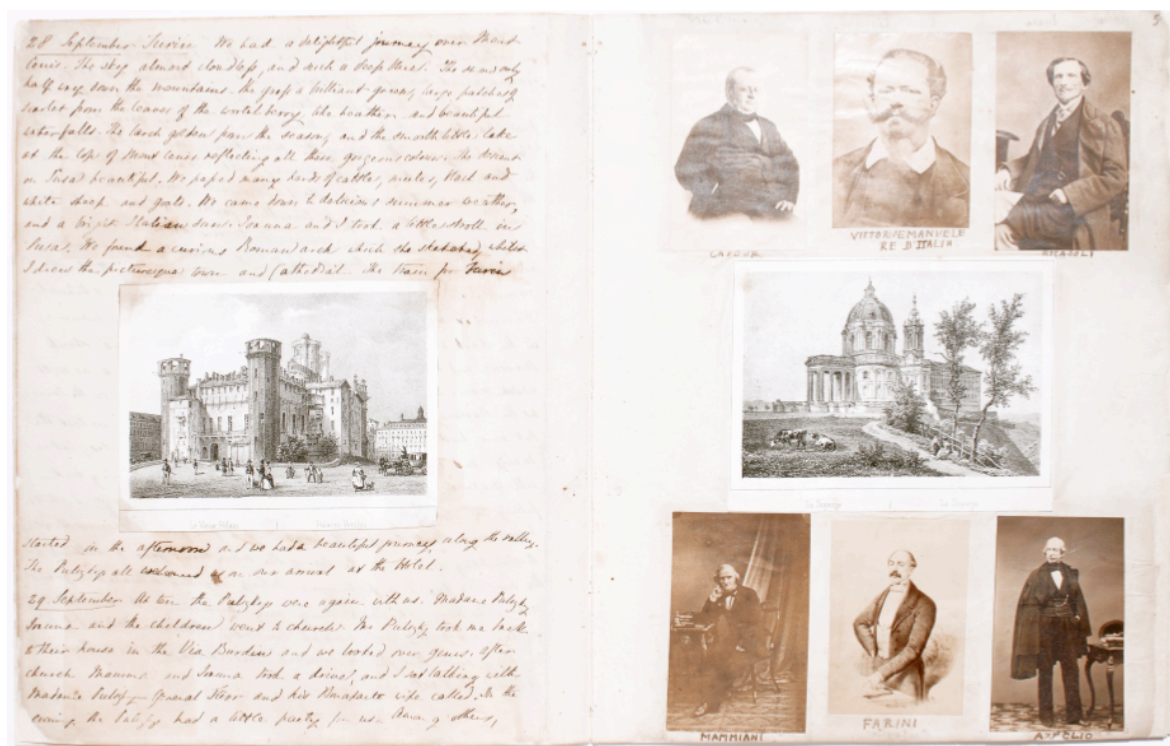 28 September Turin We had a delightful journey over Mont
Cenis. The sky almost cloudless, and such a deep blue. The snow only
half way down the mountains. the grass a brilliant green, large patches of
scarlet from the leaves of the wortelberry, the heather and beautiful
waterfalls. The larch golden from the season, and the smooth little lake
at the top of Mont Cenis reflecting all these gorgeous colours. The descent
on Susa beautiful. We passed many herds of cattle, mules, black and
white sheep and goats. We came down to delicious summer weather,
and a bright Italian sun. Joanna and I took a little stroll in
Susa. We found a curious Roman arch which she sketched, whilst
I drew the picturesque town and Cathedral. The train for Turin
Le Vieux Palais
started in the afternoon and we had a beautiful journey along the valley.
The Pulszkys all welcomed us on our arrival at the Hotel.
29 September At ten the Pulszkys were again with us. Madame Pulszky
Joanna and the children went to church. Mr Pulszky took me back
to their house in the Via and we looked over gems. After
church Mamma and Joanna took a drive, and I sat talking with
Madame Pulszky General and his wife called. In the
evening the Pulszkys had a little party for us. Among others,
9
CAVOUR
VITTORIO EMANUELE
RE D'ITALIA
RICASOLI
La Superga
MAMMIANI
FARINI
AZEGLIO